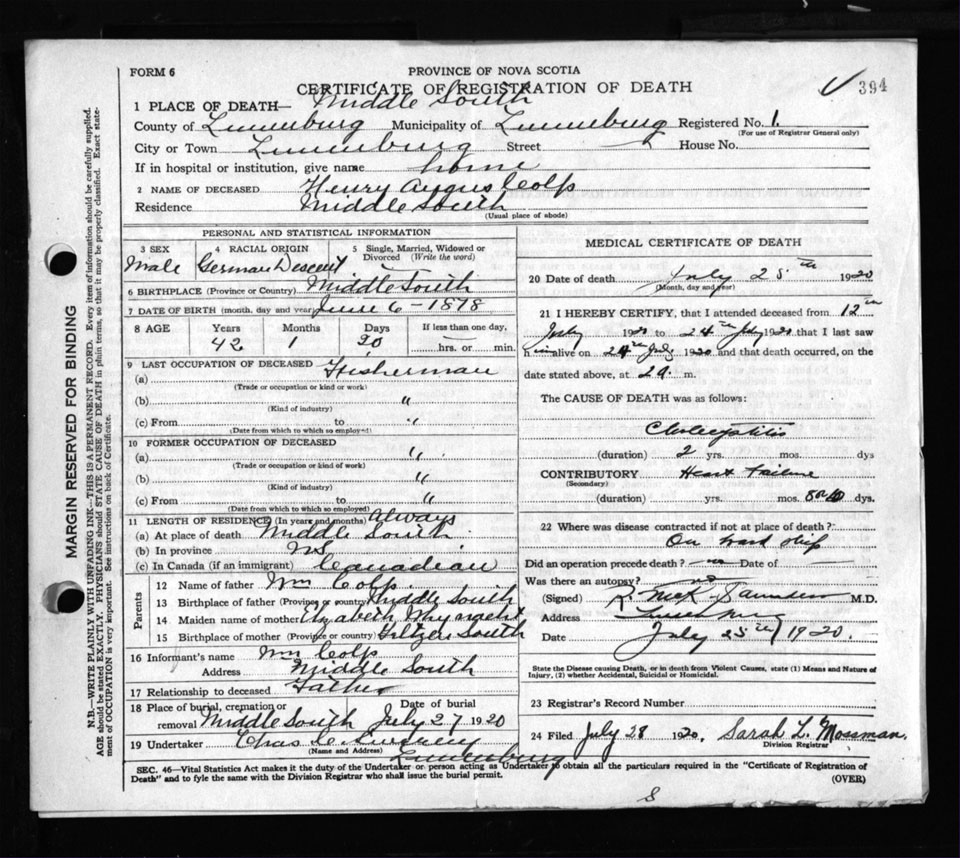 FORM 6
PROVINCE OF NOVA SCOTIA
CERTIFICATE OF REGISTRATION OF DEATH
394
1 PLACE OF DEATH— Middle South
County of Lunenburg Municipality of Lunenburg Registered No. 1.
(For use of Registrar General only)
City or Town Lunenburg Street House No.
If in hospital or institution, give name home
2 NAME OF DECEASED Henry Angus Colp
Residence Middle South
(Usual place of abode)
PERSONAL AND STATISTICAL INFORMATION
3 SEX 4 RACIAL ORIGIN 5 Single, Married, Widowed or Divorced (Write the word)
Male German Descent
6 BIRTHPLACE (Province or Country) Middle South
7 DATE OF BIRTH (month, day and year) June 6 - 1878
8 AGE Years Months Days If less than one day,
42 1 20 hrs. or min.
9 LAST OCCUPATION OF DECEASED Fisherman
(a)
(Trade or occupation or kind or work)
(b) "
(Kind of industry)
(c) From to "
(Date from which to which so employed)
10 FORMER OCCUPATION OF DECEASED
(a) "
(Trade or occupation or kind of work)
(b) "
(Kind of industry)
(c) From to "
(Date from which to which so employed)
11 LENGTH OF RESIDENCE (In years and months) Always
(a) At place of death Middle South
(b) In province N.S.
(c) In Canada (if an immigrant) Canadian
Parents
12 Name of father Wm Colp.
13 Birthplace of father (Province or country) Middle South
14 Maiden name of mother Elizabeth
15 Birthplace of mother (Province or country) Feltzen South
16 Informant's name Wm Colp
Address Middle South
17 Relationship to deceased Father
18 Place of burial, cremation or removal Date of burial
Middle South July 27 1920
19 Undertaker Chas
(Name and Address) Lunenburg
MEDICAL CERTIFICATE OF DEATH
20 Date of death July 25th 1920
(Month, day and year)
21 I HEREBY CERTIFY, that I attended deceased from 12th
July 1920 to 24th July 1920 that I last saw
him alive on 24th July 1920 and that death occurred, on the
date stated above, at m.
The CAUSE OF DEATH was as follows:
Cholecystitis
(duration) 2 yrs. mos. dys
CONTRIBUTORY Heart Failure
(Secondary)
(duration) yrs. mos. 8 or 10 dys.
22 Where was disease contracted if not at place of death?
On board ship
Did an operation precede death? no Date of
Was there an autopsy? no
(Signed) R. McK. Saunders M.D.
Address
Date July 25th 1920.
State the Disease causing Death, or in death from Violent Causes, state (1) Means and Nature of
Injury, (2) whether Accidental, Suicidal or Homicidal.
23 Registrar's Record Number
24 Filed July 28 1920. Sarah L. Mossman.
Division Registrar
SEC. 46—Vital Statistics Act makes it the duty of the Undertaker or person acting as Undertaker to obtain all the particulars required in the "Certificate of Registration of
Death" and to fyle the name with the Division Registrar who shall issue the burial permit.
(OVER)
S
MARGIN RESERVED FOR BINDING
N.B.—WRITE PLAINLY WITH UNFADING INK—THIS IS A PERMANENT RECORD. Every item of information should be carefully supplied.
AGE should be stated EXACTLY. PHYSICIANS should STATE CAUSE OF DEATH in plain terms, so that it may be properly classified. Exact state-
ment of OCCUPATION is very important. See instructions on back of Certificate.